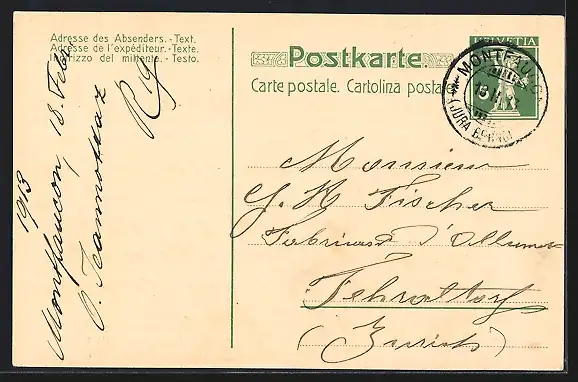 Adresse des Absenders. - Text.
Adresse de l'expéditeur. - Texte.
Indirizzo del mittente. - Testo.
Postkarte.
Carte postale. Cartolina postale
HELVETIA
MONTFAUCON
18. II. 13
(JURA BERNOIS)
Monsieur
G. H. Fischer
Fabricant d'Allumettes
Fehraltorf
(Zurich)
Montfaucon, 18. Febr
1913